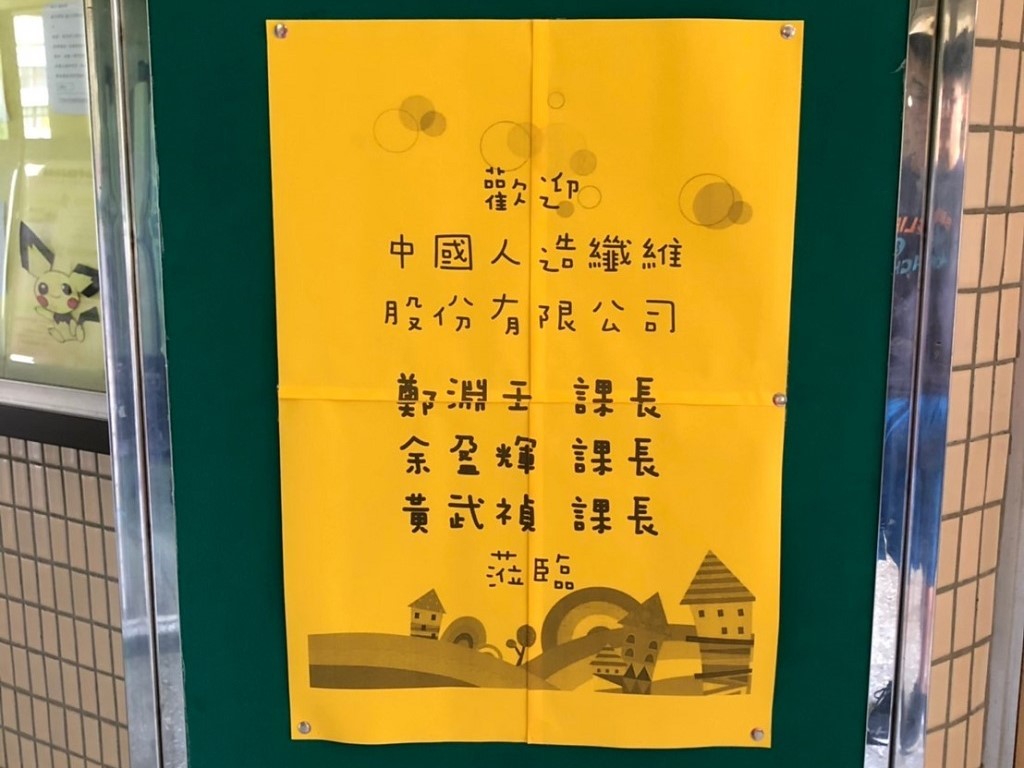 歡迎
中國人造纖維
股份有限公司
鄭淵王 課長
余盈輝 課長
黃武禎 課長
蒞臨